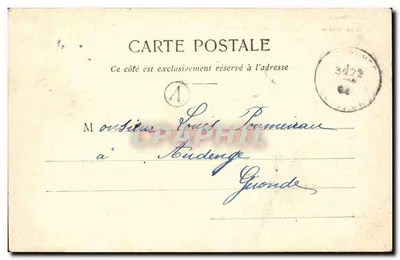 CARTE POSTALE
Ce côté est exclusivement réservé à l'adresse
A
Monsieur Louis
à Audenge
Gironde